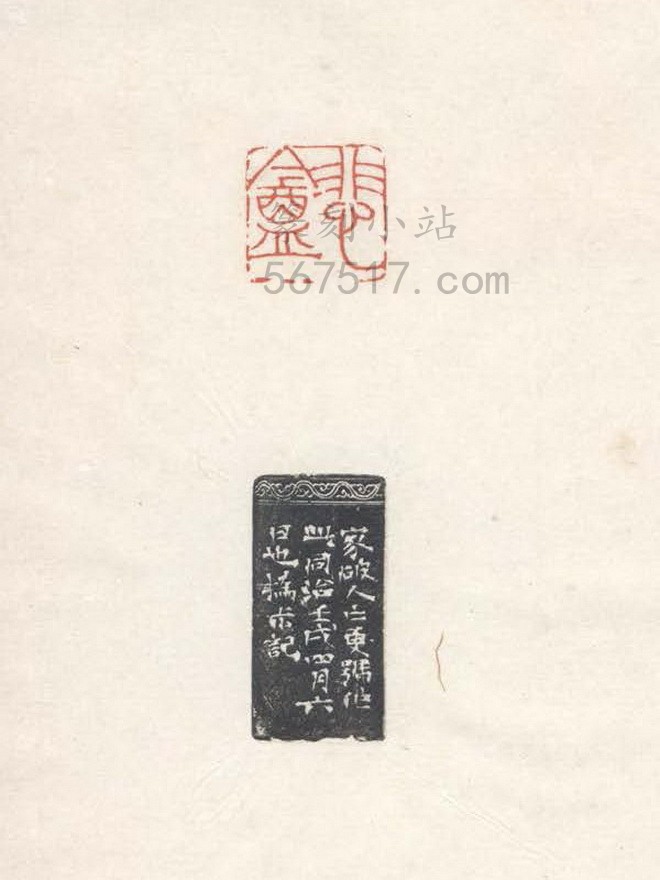 悲
盦
篆刻小站
567517. com
家破人亡更號作
此同治壬戌四月六
日也撝尗記